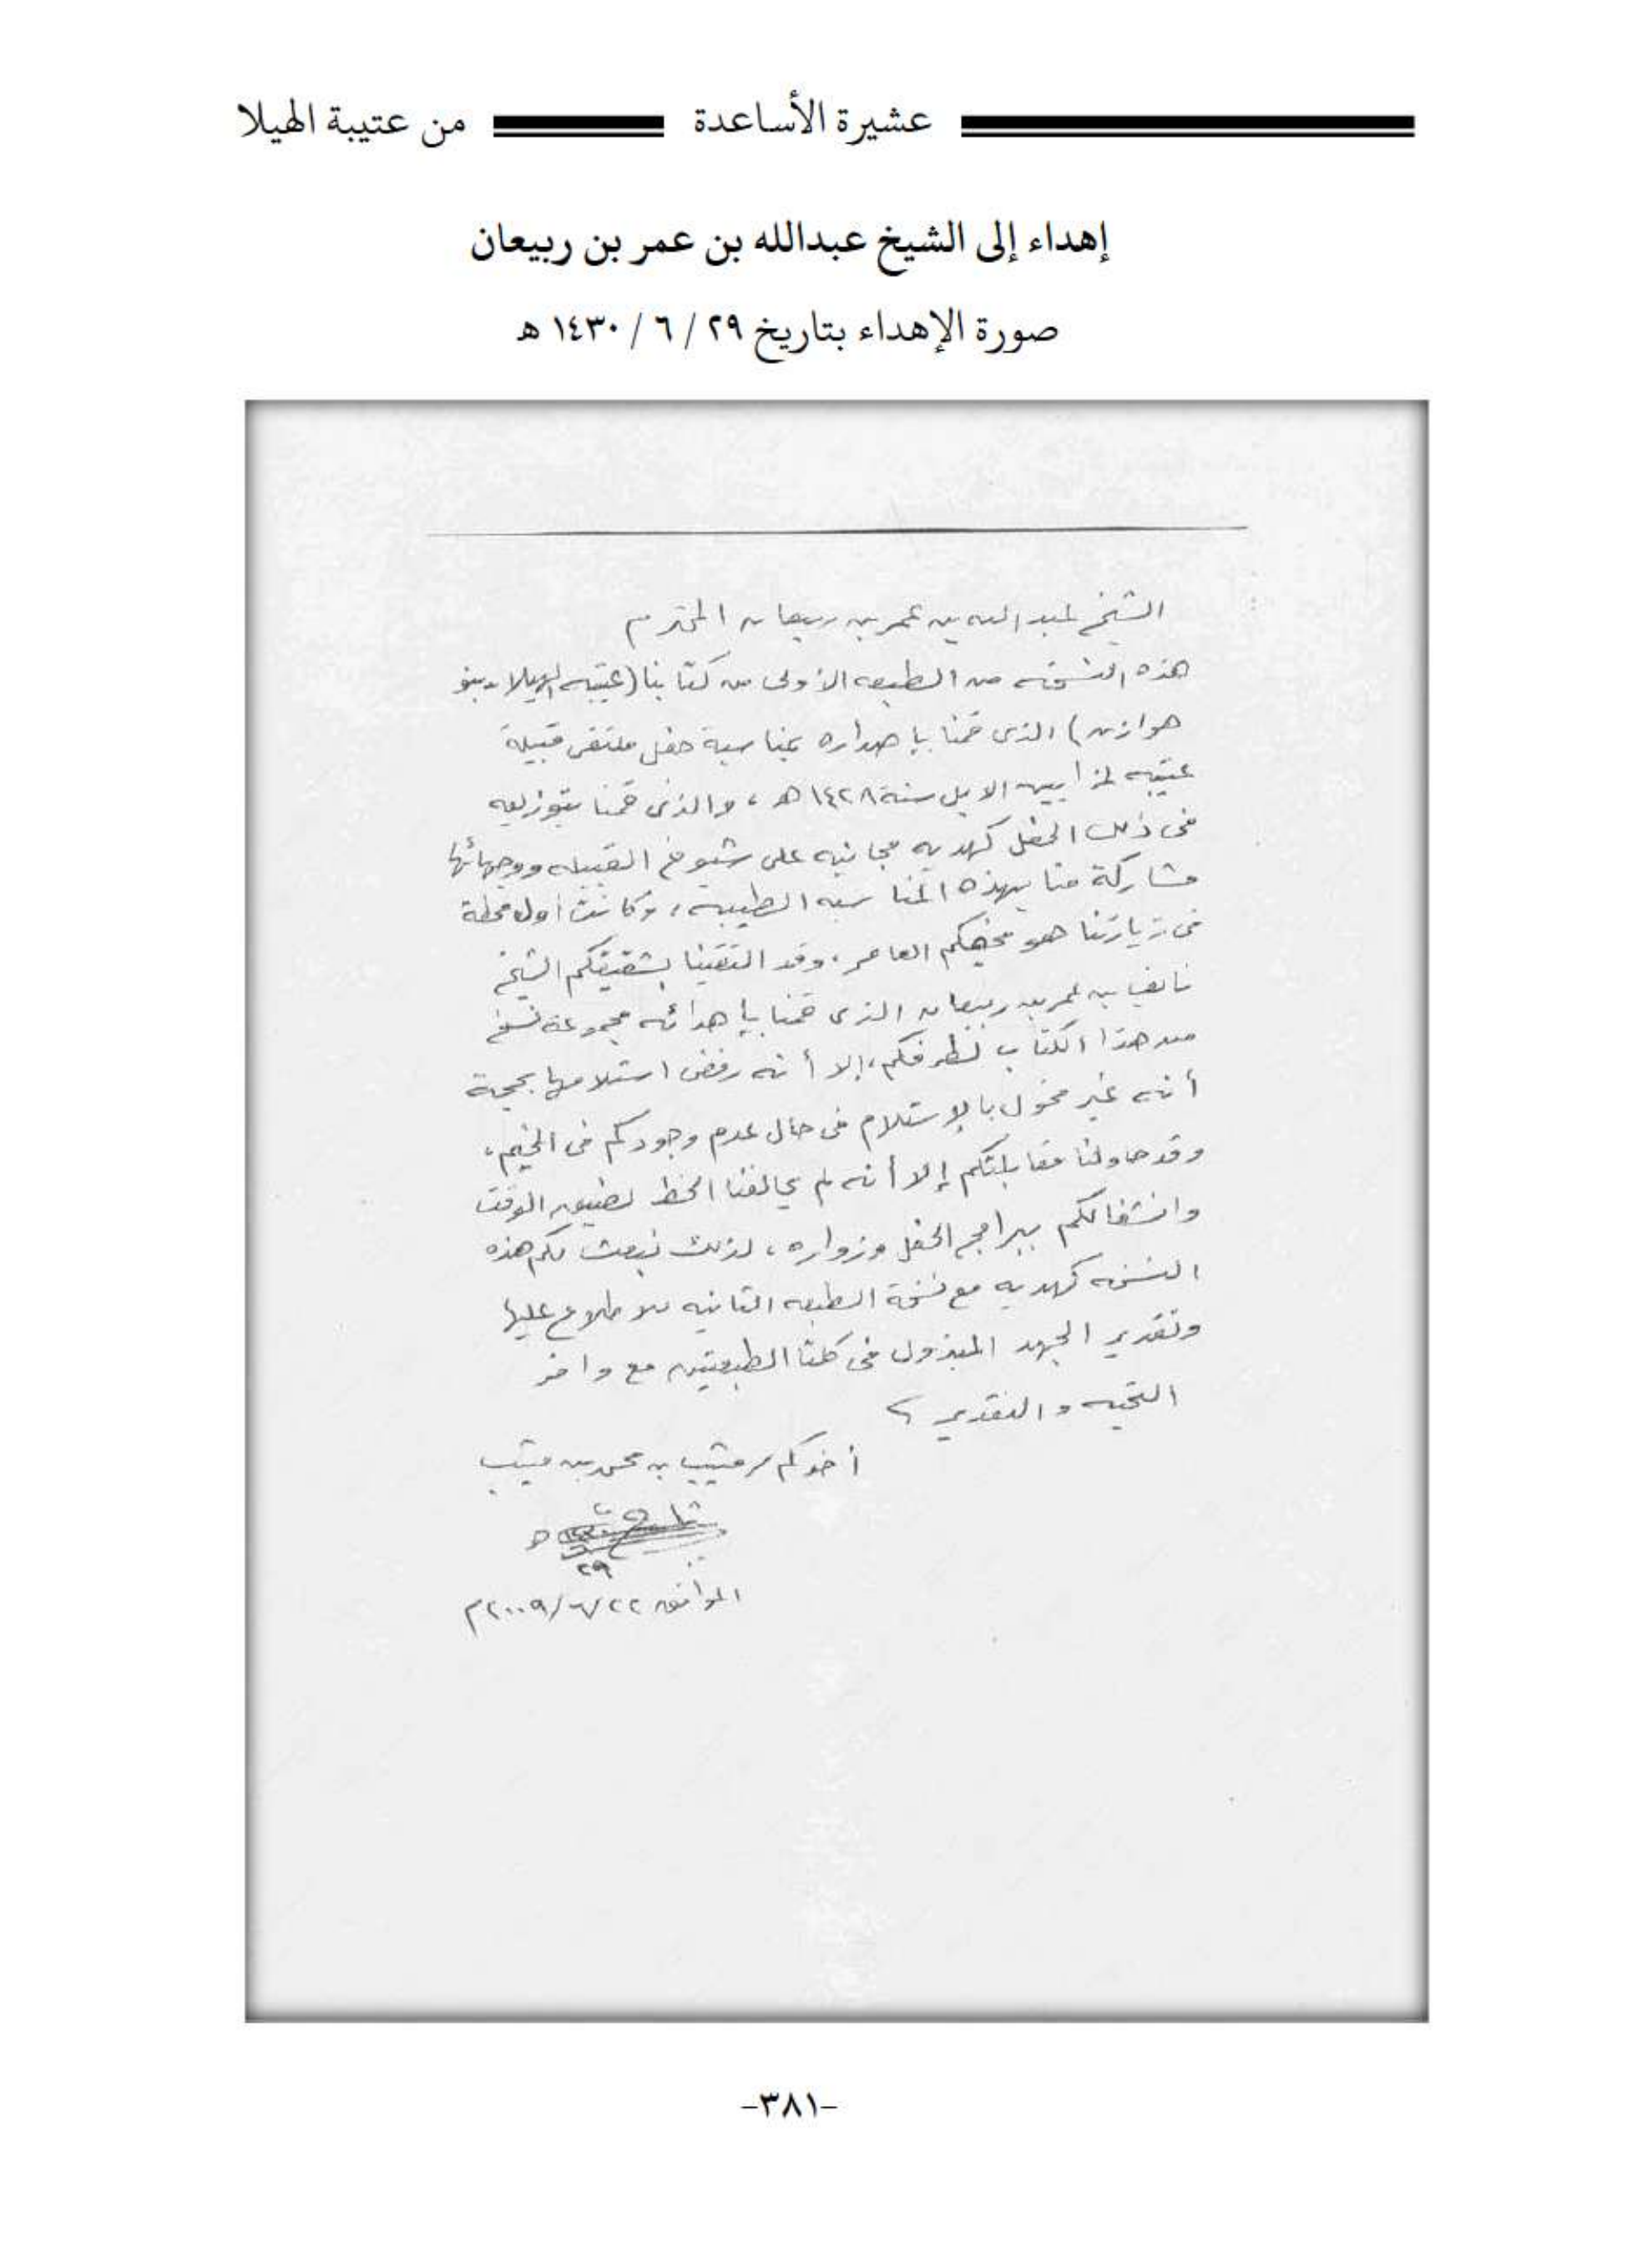 عشيرة الأساعدة من عتيبة الهيلا
إهداء إلى الشيخ عبدالله بن عمر بن ربيعان
صورة الإهداء بتاريخ ٢٩ / ٦ / ١٤٣٠ هـ
الشيخ عبدالله بن عمر بن ربيعان المحترم
هذه النسخه من الطبعه الأولى من كتابنا (عتيبه الهيلا بنو
هوازن) الذي قمنا بإصداره بمناسبة حفل ملتقى قبيلة
عتيبه لمزايين الابل سنة ١٤٢٨ هـ ، والذي قمنا بتوزيعه
في ذلك الحفل كهديه مجانيه على شيوخ القبيله ووجهائها
مشاركة منا بهذه المناسبه الطيبه ، وكانت أول محطة
في زيارتنا هو مخيمكم العامر . وقد التقينا بشقيقكم الشيخ
نايف بن عمر بن ربيعان الذي قمنا بإهدائه مجموعة نسخ
من هذا الكتاب لطرفكم ، إلا أنه رفض استلامها بحجة
أنه غير مخول بالإستلام في حال عدم وجودكم في المخيم ،
وقد حاولنا مقابلتكم إلا أنه لم يحالفنا الحظ لضيق الوقت
وانشغالكم ببرامج الحفل وزواره ، لذلك نبعث لكم هذه
النسخه كهديه مع نسخة الطبعه الثانيه للاطلاع عليها
وتقدير الجهد المبذول في كلتا الطبعتين مع وافر
التحيه والتقدير
أخوكم / متيب بن محمد بن متيب
هـ
٢٩
الموافق ٢٢/٦/٢٠٠٩م
-٣٨١-